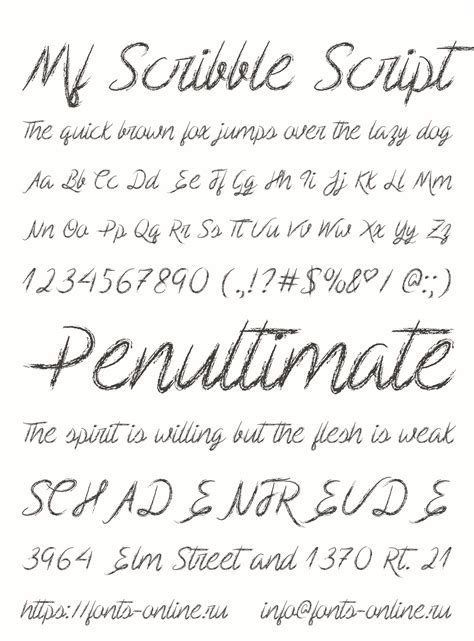 Mf Scribble Script
The quick brown fox jumps over the lazy dog
Aa Bb Cc Dd Ee Ff Gg Hh Ii Jj Kk Ll Mm
Nn Oo Pp Qq Rr Ss Tt Uu Vv Ww Xx Yy Zz
1234567890 (.,!?#$%&♡/ @:;)
Penultimate
The spirit is willing but the flesh is weak
SCHADENFREUDE
3964 Elm Street and 1370 Rt. 21
https://fonts-online.ru info@fonts-online.ru